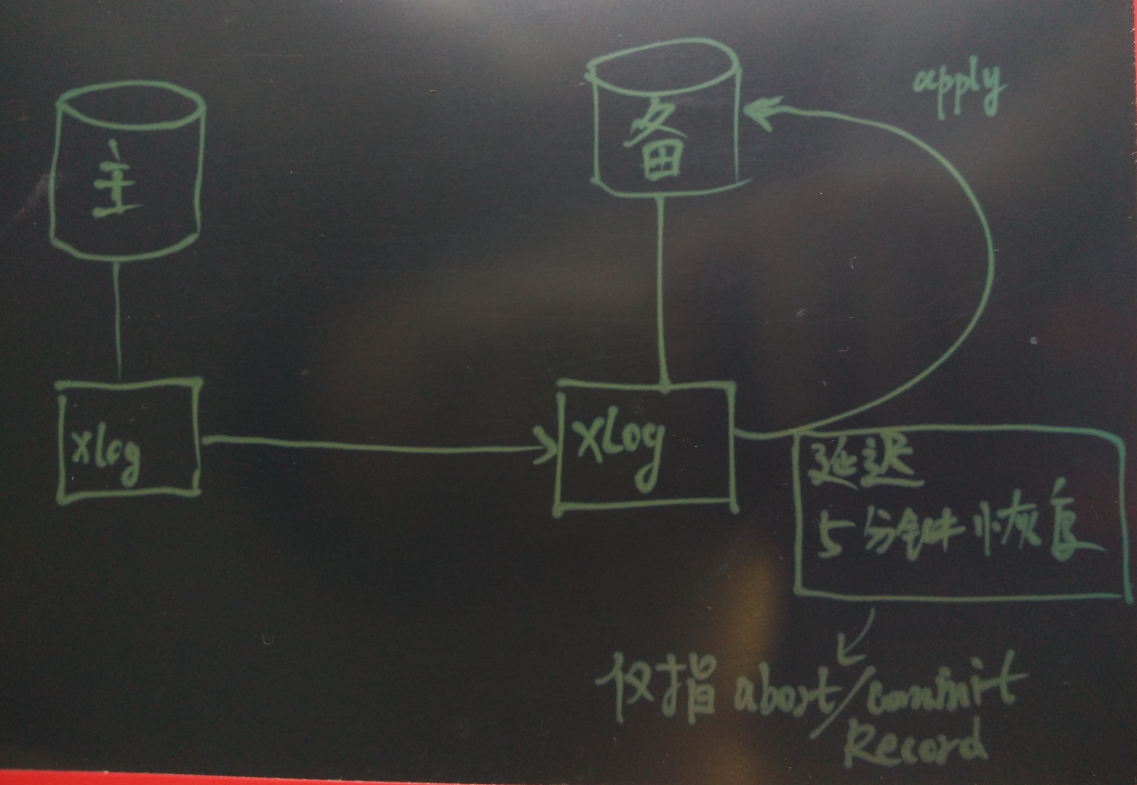 主
备
apply
xLog
xLog
延迟
5分钟恢复
仅指 abort/commit
Record